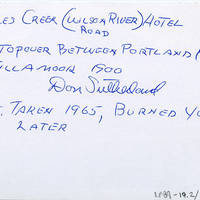 ES CREEK (WILSON RIVER) HOTEL
ROAD
TOPOVER BETWEEN PORTLAND
ILLAMOOK 1900
Don Sutherland
TAKEN 1965, BURNED
LATER